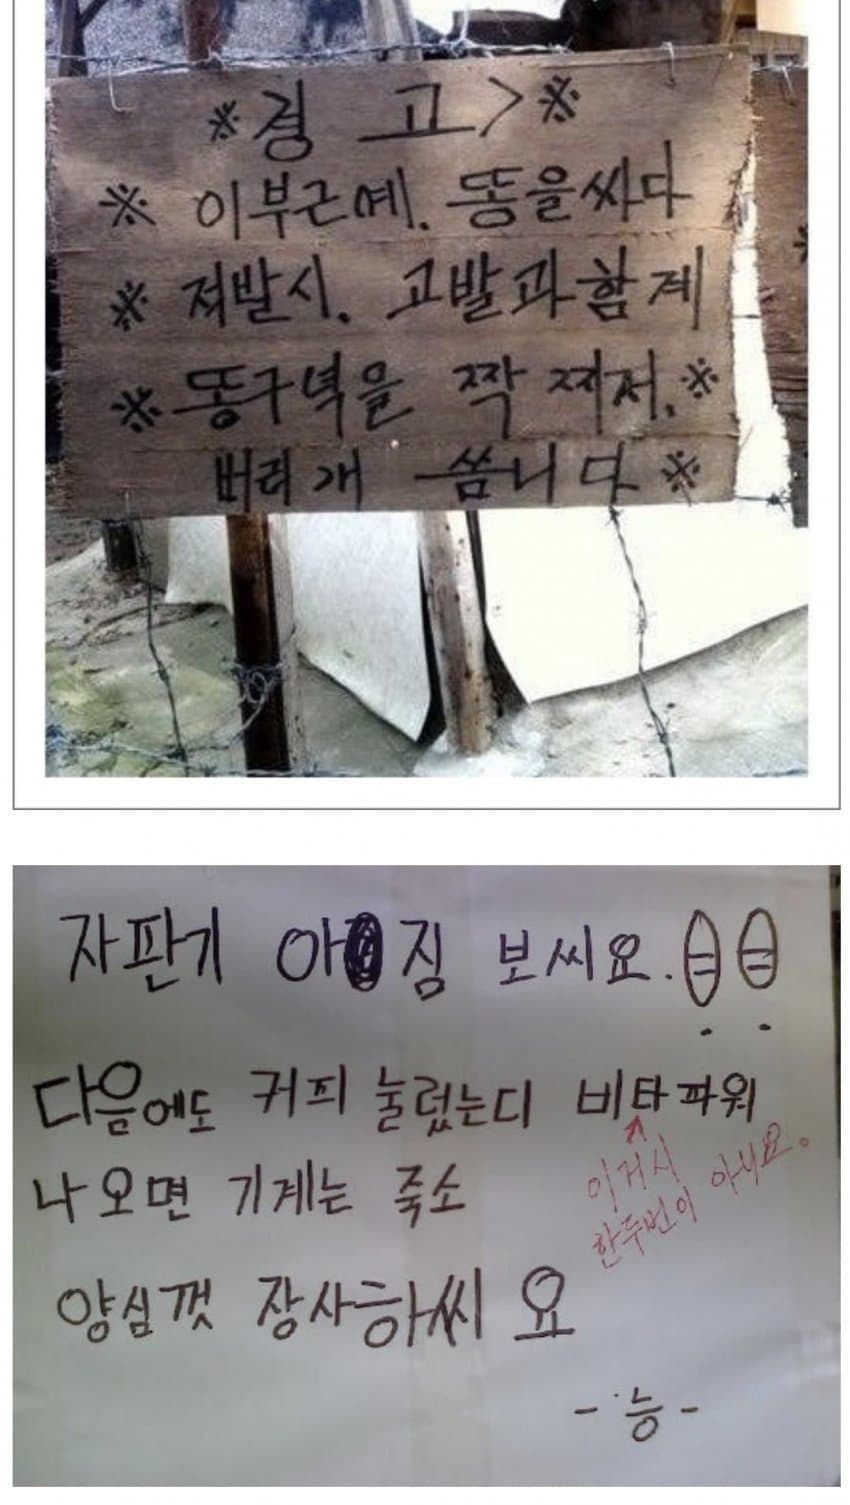 ※경 고>※
※ 이부근에. 똥을싸다
※ 적발시. 고발과함께
※ 똥구녁을 짝 찌저.※
버리개 씀니다※
자판기 아짐 보씨요.
다음에도 커피 눌렀는디 비타파워
이거시
한두번이 아니요。
나오면 기계는 죽소
양심껏 장사하씨요
- 능 -